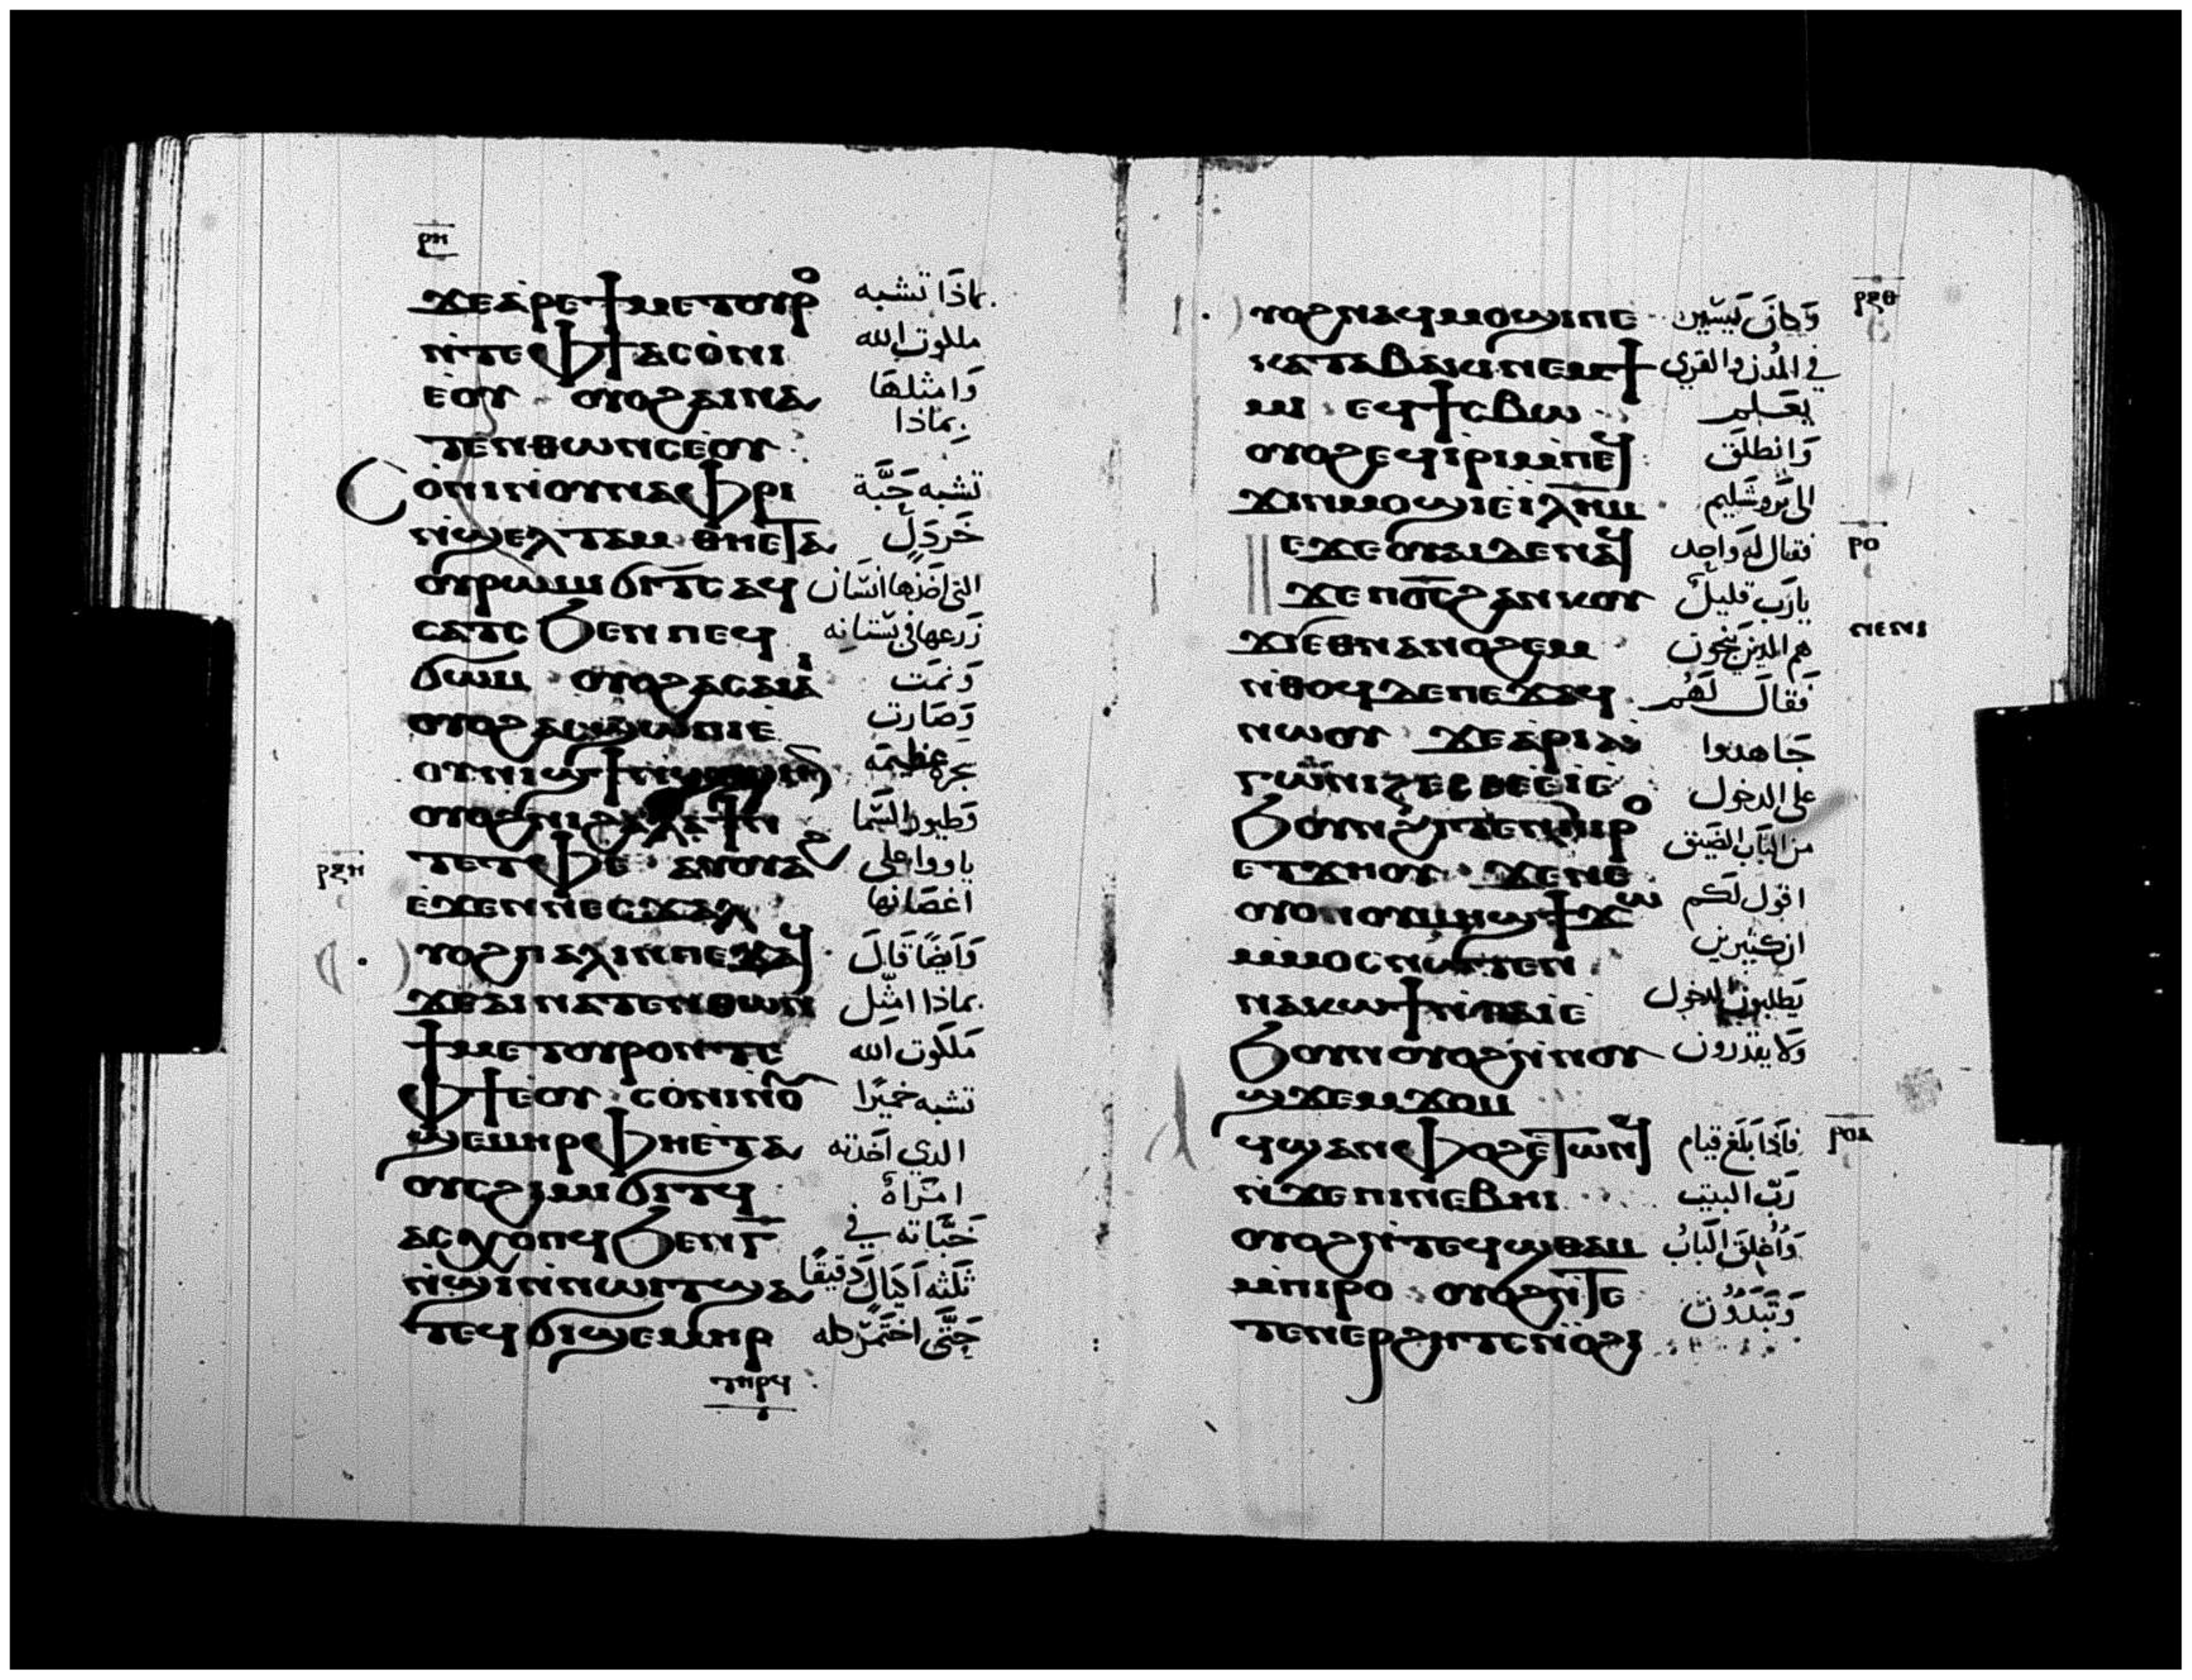 ⲣⲏ
ϫⲉⲁⲣⲉϯⲙⲉⲧⲟⲩⲣⲟ بماذا تشبه
ⲛ̀ⲧⲉⲫϯⲁⲥⲟ̀ⲛⲓ ملكوت الله
ⲉⲟⲩ ⲟⲩⲟϩⲁⲓⲛⲁ وَامثلهَا
ⲧⲉⲛⲑⲱⲛⲥⲉ̀ⲟⲩ بماذا
Ⲥⲟ̀ⲛⲓⲛ̀ⲟⲩⲛⲁⲫⲣⲓ تشبه حَبَّة
ⲛ̀ϣⲉⲗⲧⲁⲙ ⲑⲏⲉⲧⲁ خَردَلٍ
ⲟⲩⲣⲱⲙⲓ ϭⲓⲧⲥ ⲁϥ التى اخذها انسَان
ⲥⲁⲧⲥ ϧⲉⲛ ⲡⲉϥ زَرعها فى بستانه
ϭⲱⲙ ⲟⲩⲟϩⲁⲥⲁⲓⲁⲓ وَنمَت
ⲟⲩⲟϩⲁⲥϣⲱⲡⲓⲉ̀ وَصَارت
ⲟⲩⲛⲓϣϯⲛ̀ شجرة عظيمَة
ⲟⲩⲟϩⲛⲓϩⲁⲗⲁϯⲛ̀ وَطيور السَّما
ⲧⲉⲧⲫⲉ ⲁⲩⲟⲩⲁϩ ياووا على
ⲣⲝⲏ
ⲉϫⲉⲛⲛⲉⲥϫⲁⲗ اغصَانها
ⲩⲟϩⲡⲁⲗⲓⲛⲡⲉϫⲁϥ وَاَيضًا قَالَ
ϫⲉⲁⲓⲛⲁⲧⲉⲛⲑⲱⲛ بماذا امثّل
ϯⲙⲉⲧⲟⲩⲣⲟⲛ̀ⲧⲉ مَلكوت الله
ⲫϯⲉⲟⲩ ⲥⲟ̀ⲛⲓⲛ̀ⲟⲩ تشبه خميرًا
ϣⲉⲙⲏⲣⲫⲏⲉⲧⲁ الدي اخذته
ⲟⲩⲥϩⲓⲙⲓϭⲓⲧϥ امرَاة
ⲁⲥⲭⲟⲡϥϧⲉⲛⲅ̅ خَبَّاته في
ⲛ̀ϣⲓⲛ̀ⲛⲱⲓⲧϣⲁ ثلثه اَكيَال دَقيقًا
ⲧⲉϥϭⲓϣⲉⲙⲏⲣ حَتَّى اختمَر كله
ⲧⲏⲣϥ
ⲣⲝⲑ
ⲩⲟϩⲛⲁϥⲙⲟϣⲓⲡⲉ وَكانَ يَسَير
ⲕⲁⲧⲁⲃⲁⲕⲓⲛⲉⲙϯ في المُدن والقري
ⲙⲓ ⲉϥϯⲥⲃⲱ يعَلم
ⲟⲩⲟϩⲉϥⲓ̀ⲣⲓⲙ̀ⲡⲉϥ وَانطلَق
ϫⲓⲛⲙⲟϣⲓⲉ̀ⲓ̅ⲗ̅ⲏ̅ⲙ̅ الى يَروشَليم
ⲣⲟ
ⲉϫⲉⲟⲩⲁⲓⲇⲉⲛⲁϥ فقال له وَاحِد
ϫⲉⲡⲟ̅ⲥ̅ϩⲁⲛⲕⲟⲩ يارَب قليل
ⲛⲉⲛⲓ
ϫⲓⲉⲑⲛⲁⲛⲟϩⲉⲙ هم الدينَ ينجَون
ⲛ̀ⲑⲟϥⲇⲉⲡⲉϫⲁϥ فَقالَ لهُم
ⲛⲱⲟⲩ ϫⲉⲁⲣⲓⲁ̀ جَاهدوا
ⲅⲱⲛⲓⲍⲉⲥⲑⲉⲉ̀ⲓⲉ̀ على الدخول
ϧⲟⲩⲛϩⲓⲧⲉⲛⲡⲓⲣⲟ من البَاب الضيق
ⲉⲧϫⲏⲟⲩ ϫⲉⲛⲉ اقول لكم
ⲟⲩⲟⲛⲟⲩⲙⲏϣϯϫⲱ ان كثيرين
ⲙ̀ⲙⲟⲥⲛⲱⲧⲉⲛ
ⲛⲁⲕⲱϯⲛ̀ⲥⲁⲓⲉ̀ يَطلبون الدخول
ϧⲟⲩⲛⲟⲩⲟϩⲛ̀ⲛⲟⲩ وَلا يقدرون
ϣϫⲉⲙϫⲟⲙ
ⲣⲟⲁ
ϥϣⲁⲛⲫⲟϩⲉ̀ⲧⲱⲛϥ فاَذا بَلغ قيام
ⲛ̀ϫⲉⲡⲓⲛⲉⲃⲏⲓ رَبّ البيت
ⲟⲩⲟϩⲛ̀ⲧⲉϥϣⲑⲁⲙ وَاُغلق البَابُ
ⲙ̀ⲡⲓⲣⲟ ⲟⲩⲟϩⲛ̀ⲧⲉ وَتَبْدَوُن
ⲧⲉⲛⲉⲣϩⲏⲧⲥⲛ̀ⲟϩⲓ